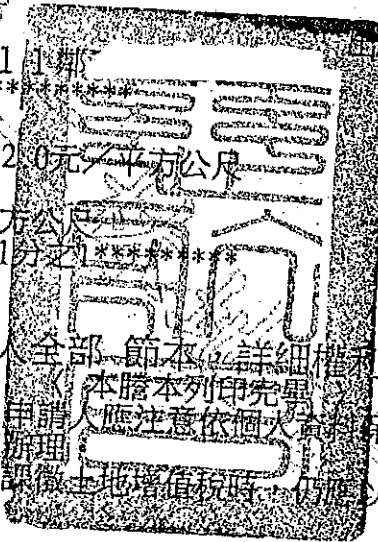 11鄰
*********
20元/平方公尺
方公尺
1分之1*********
人全部 節本 詳細權利
〈 本謄本列印完畢 〉
申請人應注意依個人資料
辦理
課徵土地增值稅時，仍應